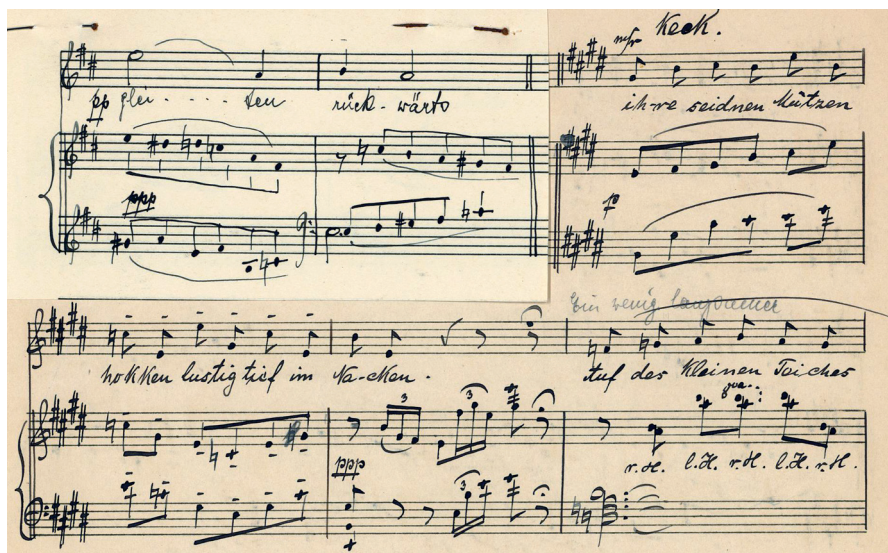 mf Keck.
pp glei - . . . - ten rück - wärts
ihre seidnen Mützen
ppp
f
Ein wenig langsamer
hokken lustig tief im Na-cken.
Auf des kleinen Teiches
3 3 8va...
ppp
r.H. l.H. r.H. l.H. r.H.
3